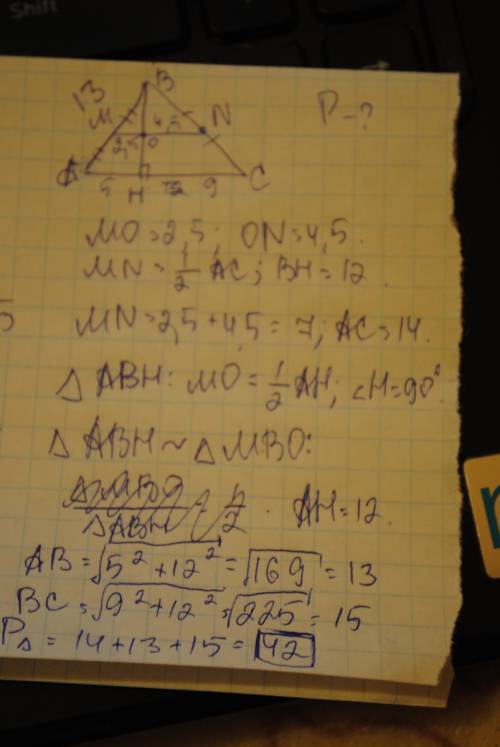 B
13
M
4,5
N
P-?
2,5
O
A
5
H
9
C
MO=2,5; ON=4,5.
MN=1/2 AC; BH=12.
5
MN=2,5+4,5=7; AC=14.
△ABH: MO=1/2 AH; ∠H=90°.
△ABH~△MBO:
AH=12.
AB=√5²+12²=√169=13
BC=√9²+12²=√225=15
P△=14+13+15=42